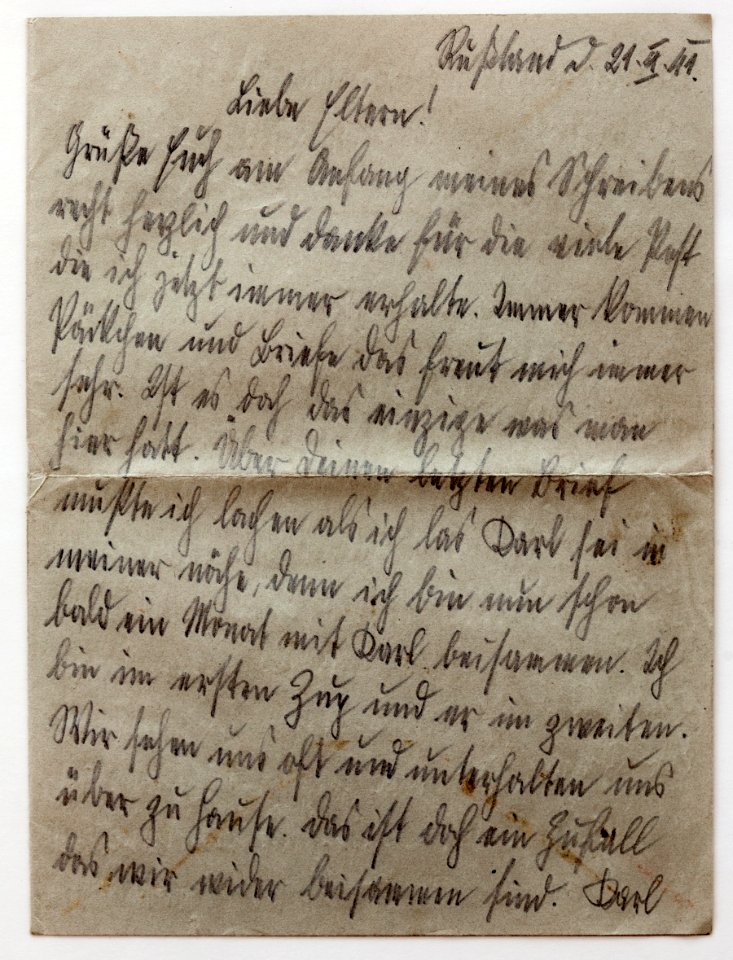 Rußland d. 21. II. 41.
Liebe Eltern!
Grüße Euch am Anfang meines Schreibens
recht herzlich und danke für die viele Post
die ich jetzt immer erhalte. Immer kommen
Päckchen und Briefe das freut mich immer
sehr. Ist es doch das einzige was man
hier hatt. Über Deinen letzten Brief
mußte ich lachen als ich las Karl sei in
meiner nähe, denn ich bin nun schon
bald ein Monat mit Karl beisammen. Ich
bin im ersten Zug und er im zweiten.
Wir sehen uns oft und unterhalten uns
über zu hause. Das ist doch ein Zufall
das wir wider beisammen sind. Karl